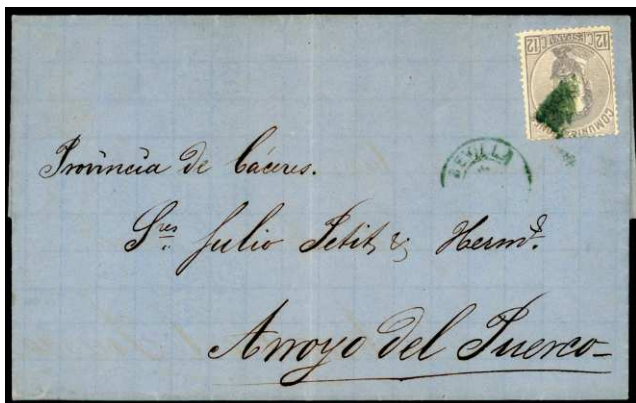 12 C. ESPAÑA C. 12
COMUNI
SEVILLA
Provincia de Cáceres.
Sres Julio Petit, & Hermº.
Arroyo del Puerco